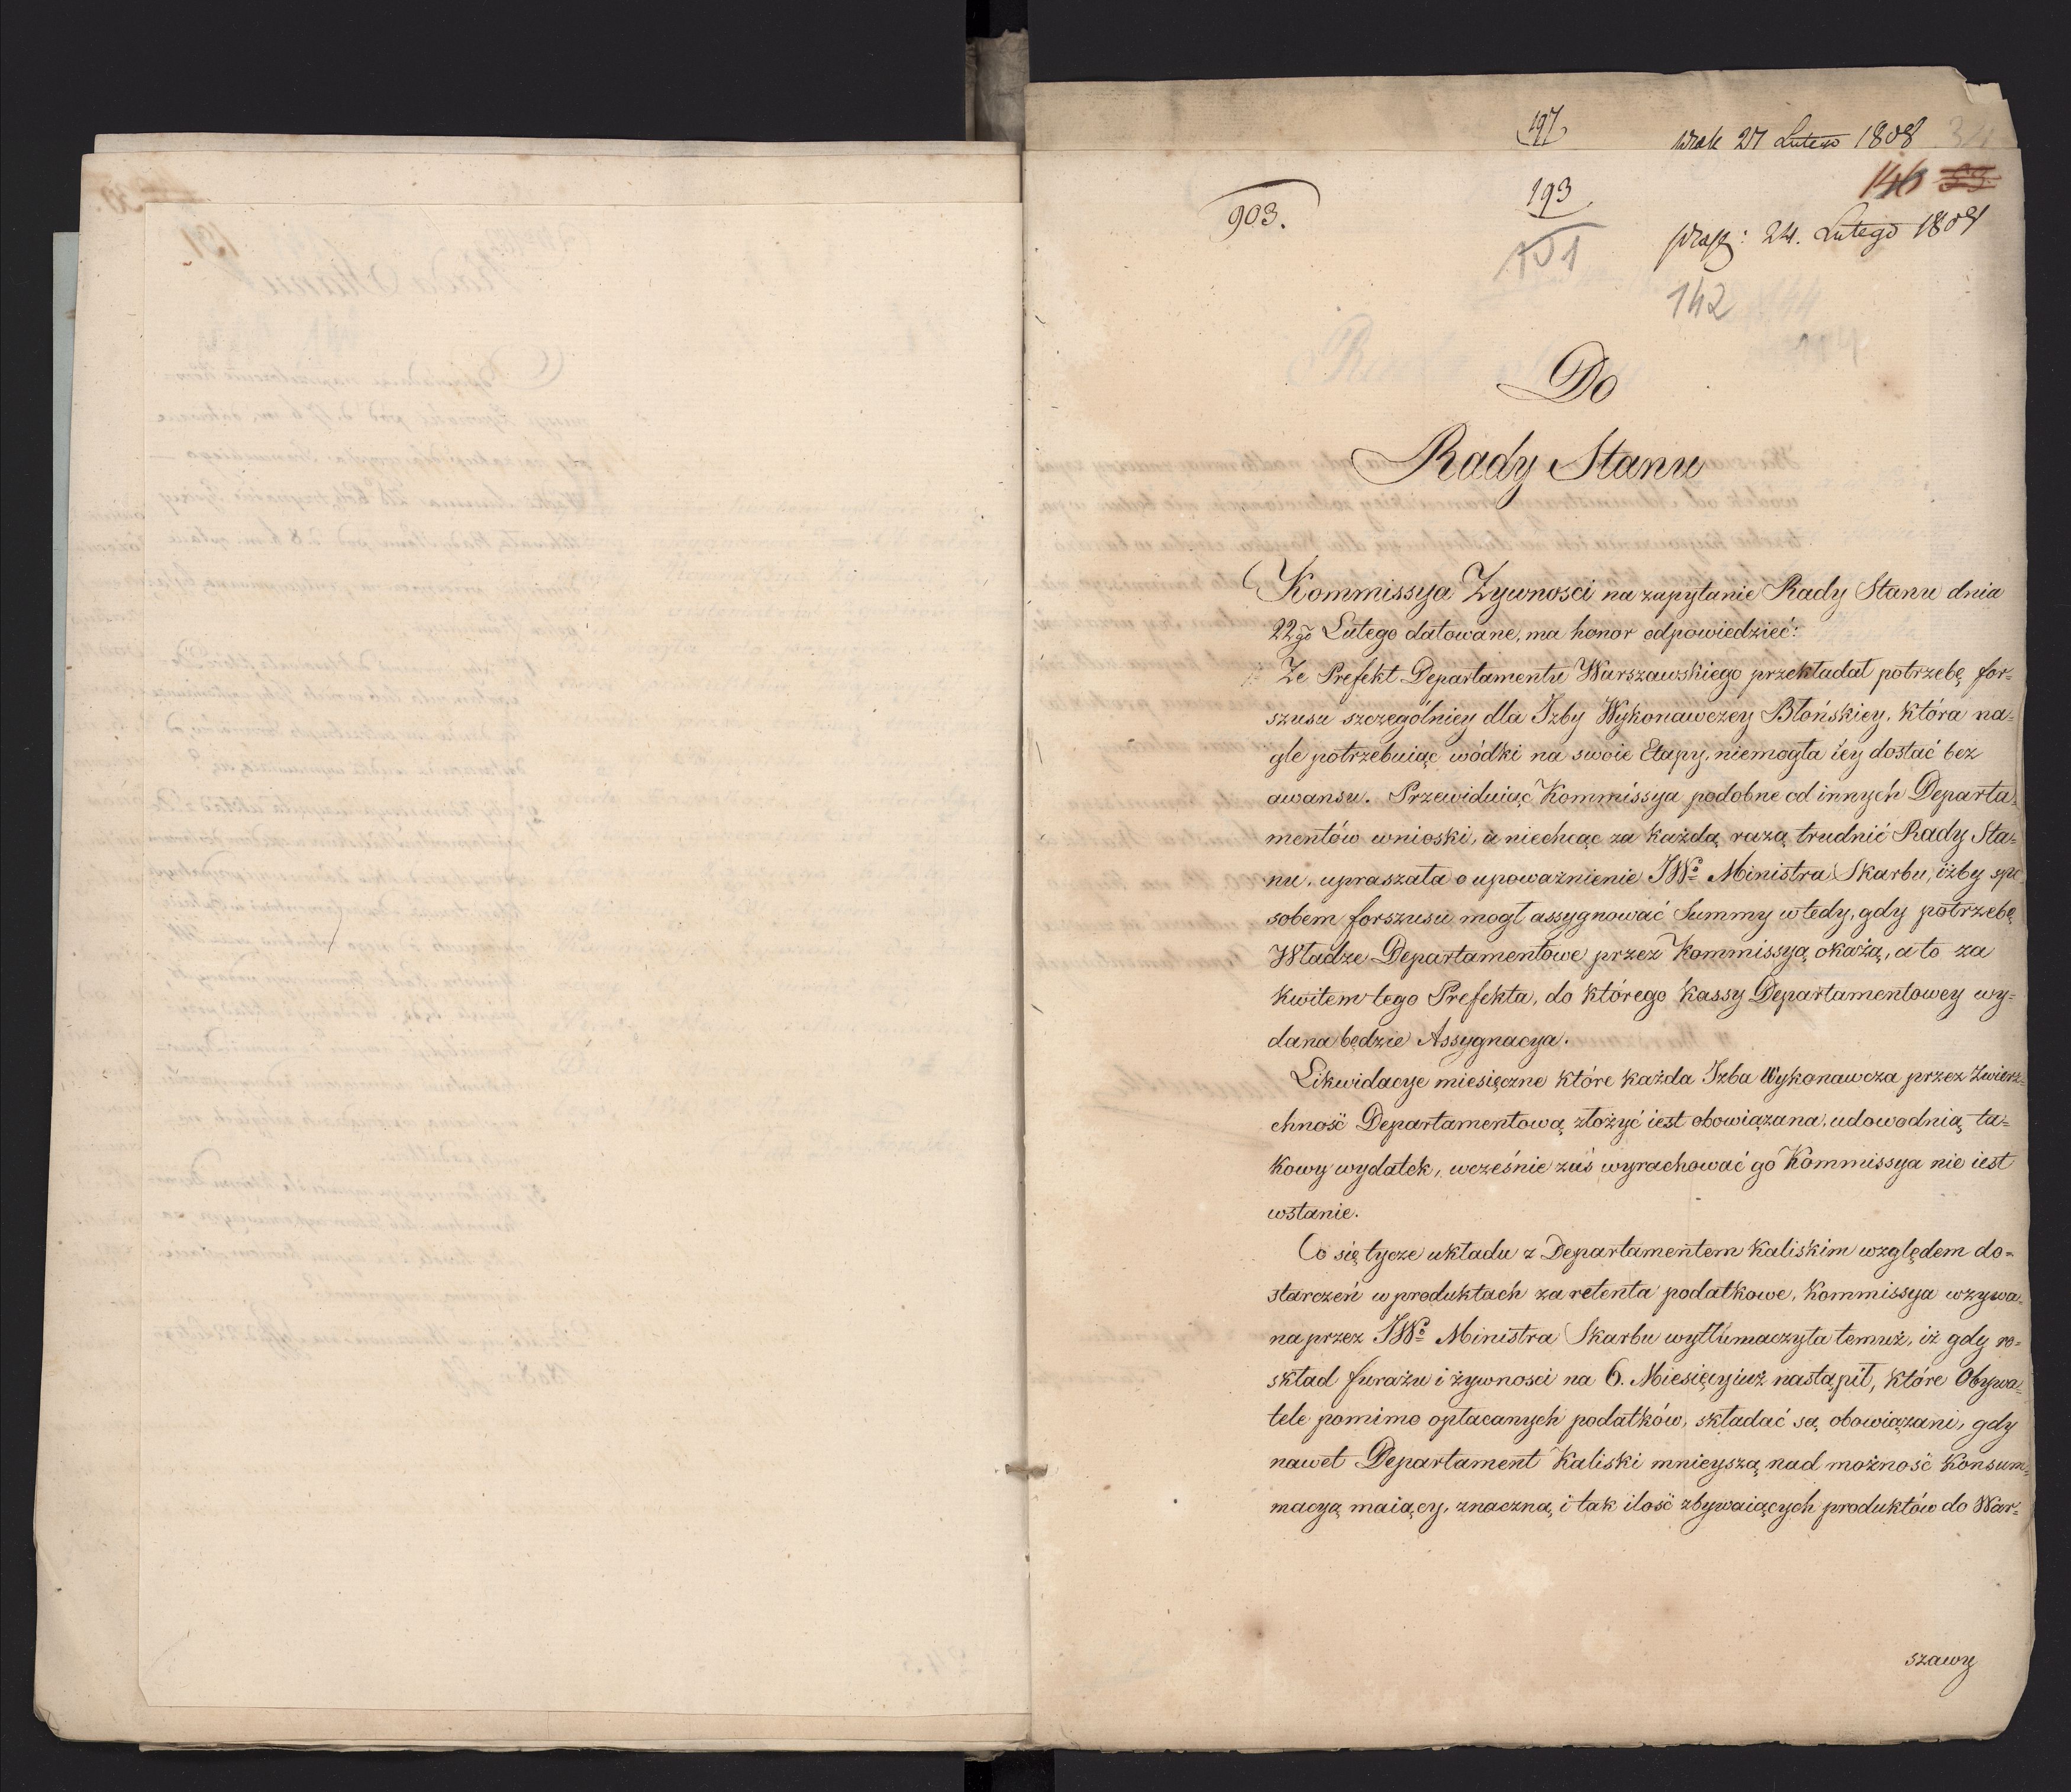 197
27 Lutego 1808
146
193
903.
24. Lutego 1808
101
142
144
Do
Rady Stanu
Kommissya Zywnosci na zapytanie Rady Stanu dnia
22go Lutego datowane, ma honor odpowiedzieć:
Ze Prefekt Departamentu Warszawskiego przekładał potrzebę for=
szusu szczególniey dla Izby Wykonawczey Błońskiey, która na=
gle potrzebuiąc wódki na swoie Etapy, niemogła iey dostać bez
awansu. Przewiduiąc Kommissya podobne od innych Departa=
mentów wnioski, a niechcąc za każdą razą trudnić Rady Sta=
nu, upraszała o upoważnienie JWo Ministra Skarbu, iżby spo
sobem forszusu mogł assygnować Summy wtedy, gdy potrzebę
Władze Departamentowe przez Kommissyą okażą, a to za
kwitem tego Prefekta, do którego Kassy Departamentowey wy=
dana będzie Assygnacya.
Likwidacye miesięczne które każda Izba Wykonawcza przez Zwierz=
chność Departamentową złożyć iest obowiązana, udowodnią ta=
kowy wydatek, wcześnie zaś wyrachować go Kommissya nie iest
wstanie.
Co się tycze układu z Departamentem Kaliskim względem do=
starczeń w produktach za retenta podatkowe, Kommissya wzywa=
na przez JWo Ministra Skarbu wytłumaczyła temuż, iż gdy ro=
skład furażu i żywnosci na 6. Miesięcy iuż nastąpił, które Obywa=
tele pomimo opłacanych podatków, składać są obowiązani, gdy
nawet Departament Kaliski mnieyszą nad możność konsum=
macyą maiący, znaczną i tak ilość zbywaiących produktów do War=
szawy